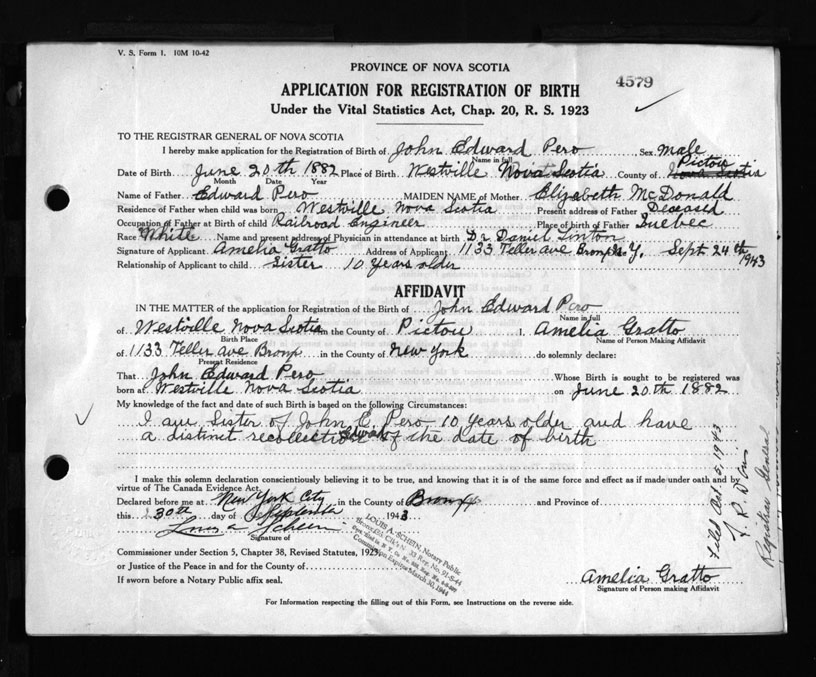 V. S. Form 1. 10M 10-42
PROVINCE OF NOVA SCOTIA
4579
APPLICATION FOR REGISTRATION OF BIRTH
Under the Vital Statistics Act, Chap. 20, R. S. 1923
TO THE REGISTRAR GENERAL OF NOVA SCOTIA
I hereby make application for the Registration of Birth of John Edward Pero Sex Male
Name in full
Pictou
Date of Birth June 20th 1882 Place of Birth Westville Nova Scotia County of Nova Scotia
Month Date Year
Name of Father Edward Pero MAIDEN NAME of Mother Elizabeth McDonald
Residence of Father when child was born Westville Nova Scotia Present address of Father Deceased
Occupation of Father at Birth of child Railroad Engineer Place of birth of Father Quebec
Race White Name and present address of Physician in attendance at birth Dr Daniel Linton
Signature of Applicant Amelia Gratto Address of Applicant 1133 Teller ave Bronx N. Y. Sept 24th
1943
Relationship of Applicant to child Sister 10 Years older
AFFIDAVIT
IN THE MATTER of the application for Registration of the Birth of John Edward Pero
Name in full
of Westville Nova Scotia in the County of Pictou I. Amelia Gratto
Birth Place Name of Person Making Affidavit
of 1133 Teller Ave Bronx in the County of New York do solemnly declare:
Present Residence
That John Edward Pero Whose Birth is sought to be registered was
born at Westville Nova Scotia on June 20th 1882
My knowledge of the fact and date of such Birth is based on the following Circumstances:
I am Sister of John E. Pero 10 years older and have
a distinct recollection of the date of birth
I make this solemn declaration conscientiously believing it to be true, and knowing that it is of the same force and effect as if made under oath and by
virtue of The Canada Evidence Act.
Declared before me at New York City in the County of Bronx and Province of
this 30th day of September 1943
Louis A Schein
Signature of
LOUIS A. SCHEIN, Notary Public
Commission Expires March 30, 1944
Commissioner under Section 5, Chapter 38, Revised Statutes, 1923
or Justice of the Peace in and for the County of
If sworn before a Notary Public affix seal.
Amelia Gratto
Signature of Person making Affidavit
For Information respecting the filling out of this Form, see Instructions on the reverse side.
Filed Oct. 5, 1943
Registrar General